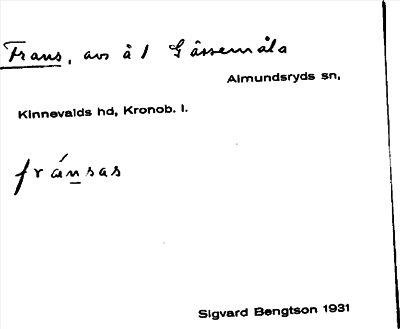 Frans, avs å 1 Gåssemåla
Almundsryds sn,
Kinnevalds hd, Kronob. l.
fránsas
Sigvard Bengtson 1931